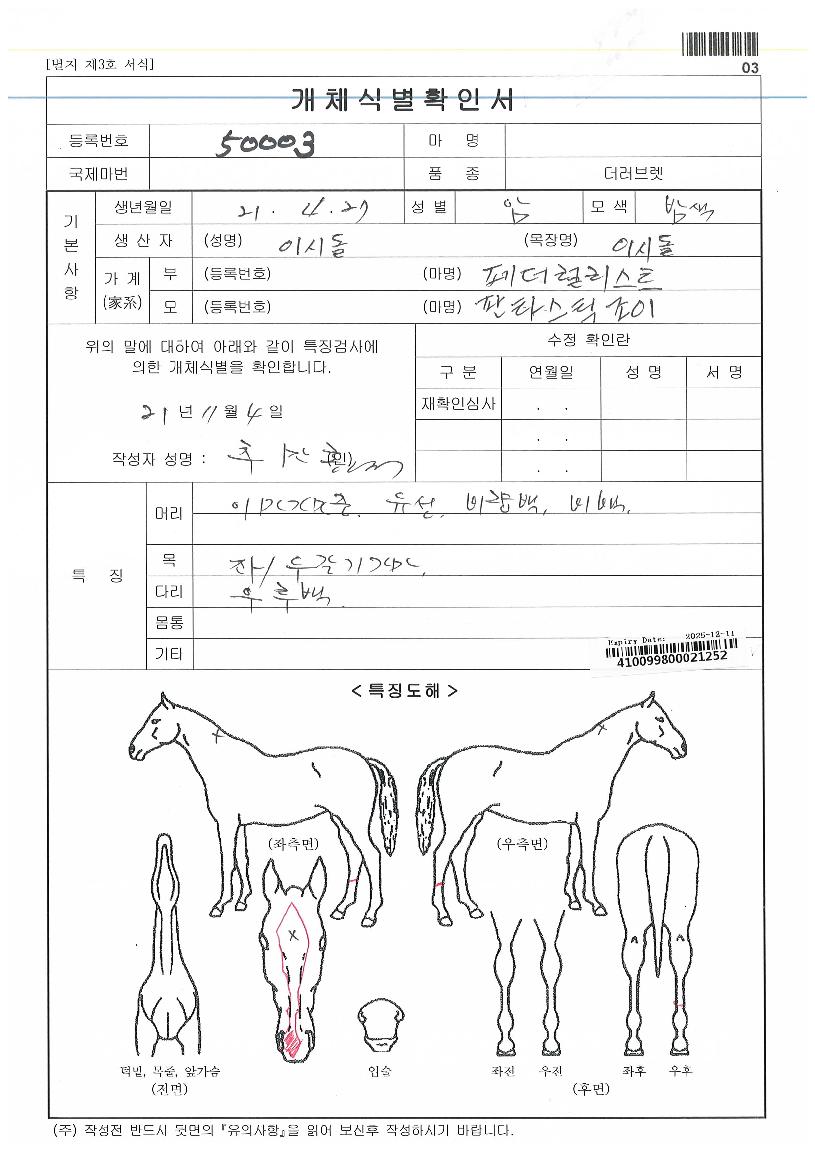 [별지 제3호 서식]
03
개체식별확인서
등록번호 50003 마 명
국제마번 품 종 더러브렛
기본사항
생년월일 21. 4. 27 성 별 암 모 색 밤색
생 산 자 (성명) 이시돌 (목장명) 이시돌
가 계 (家系) 부 (등록번호) (마명) 페더럴리스트
모 (등록번호) (마명) 판타스틱 조이
위의 말에 대하여 아래와 같이 특징검사에
의한 개체식별을 확인합니다.
21 년 11 월 4 일
작성자 성명 : (인)
수정 확인란
구 분 연월일 성 명 서 명
재확인심사 . .
. .
. .
특 징
머리 유선, 비량백, 비백.
목 좌/우
다리 우후백.
몸통
기타
Expiry Date: 2025-12-11
410099800021252
< 특징도해 >
(좌측면) (우측면)
턱밑, 목줄, 앞가슴
(전면)
입술
좌전 우전 좌후 우후
(후면)
(주) 작성전 반드시 뒷면의 『유의사항』을 읽어 보신후 작성하시기 바랍니다.